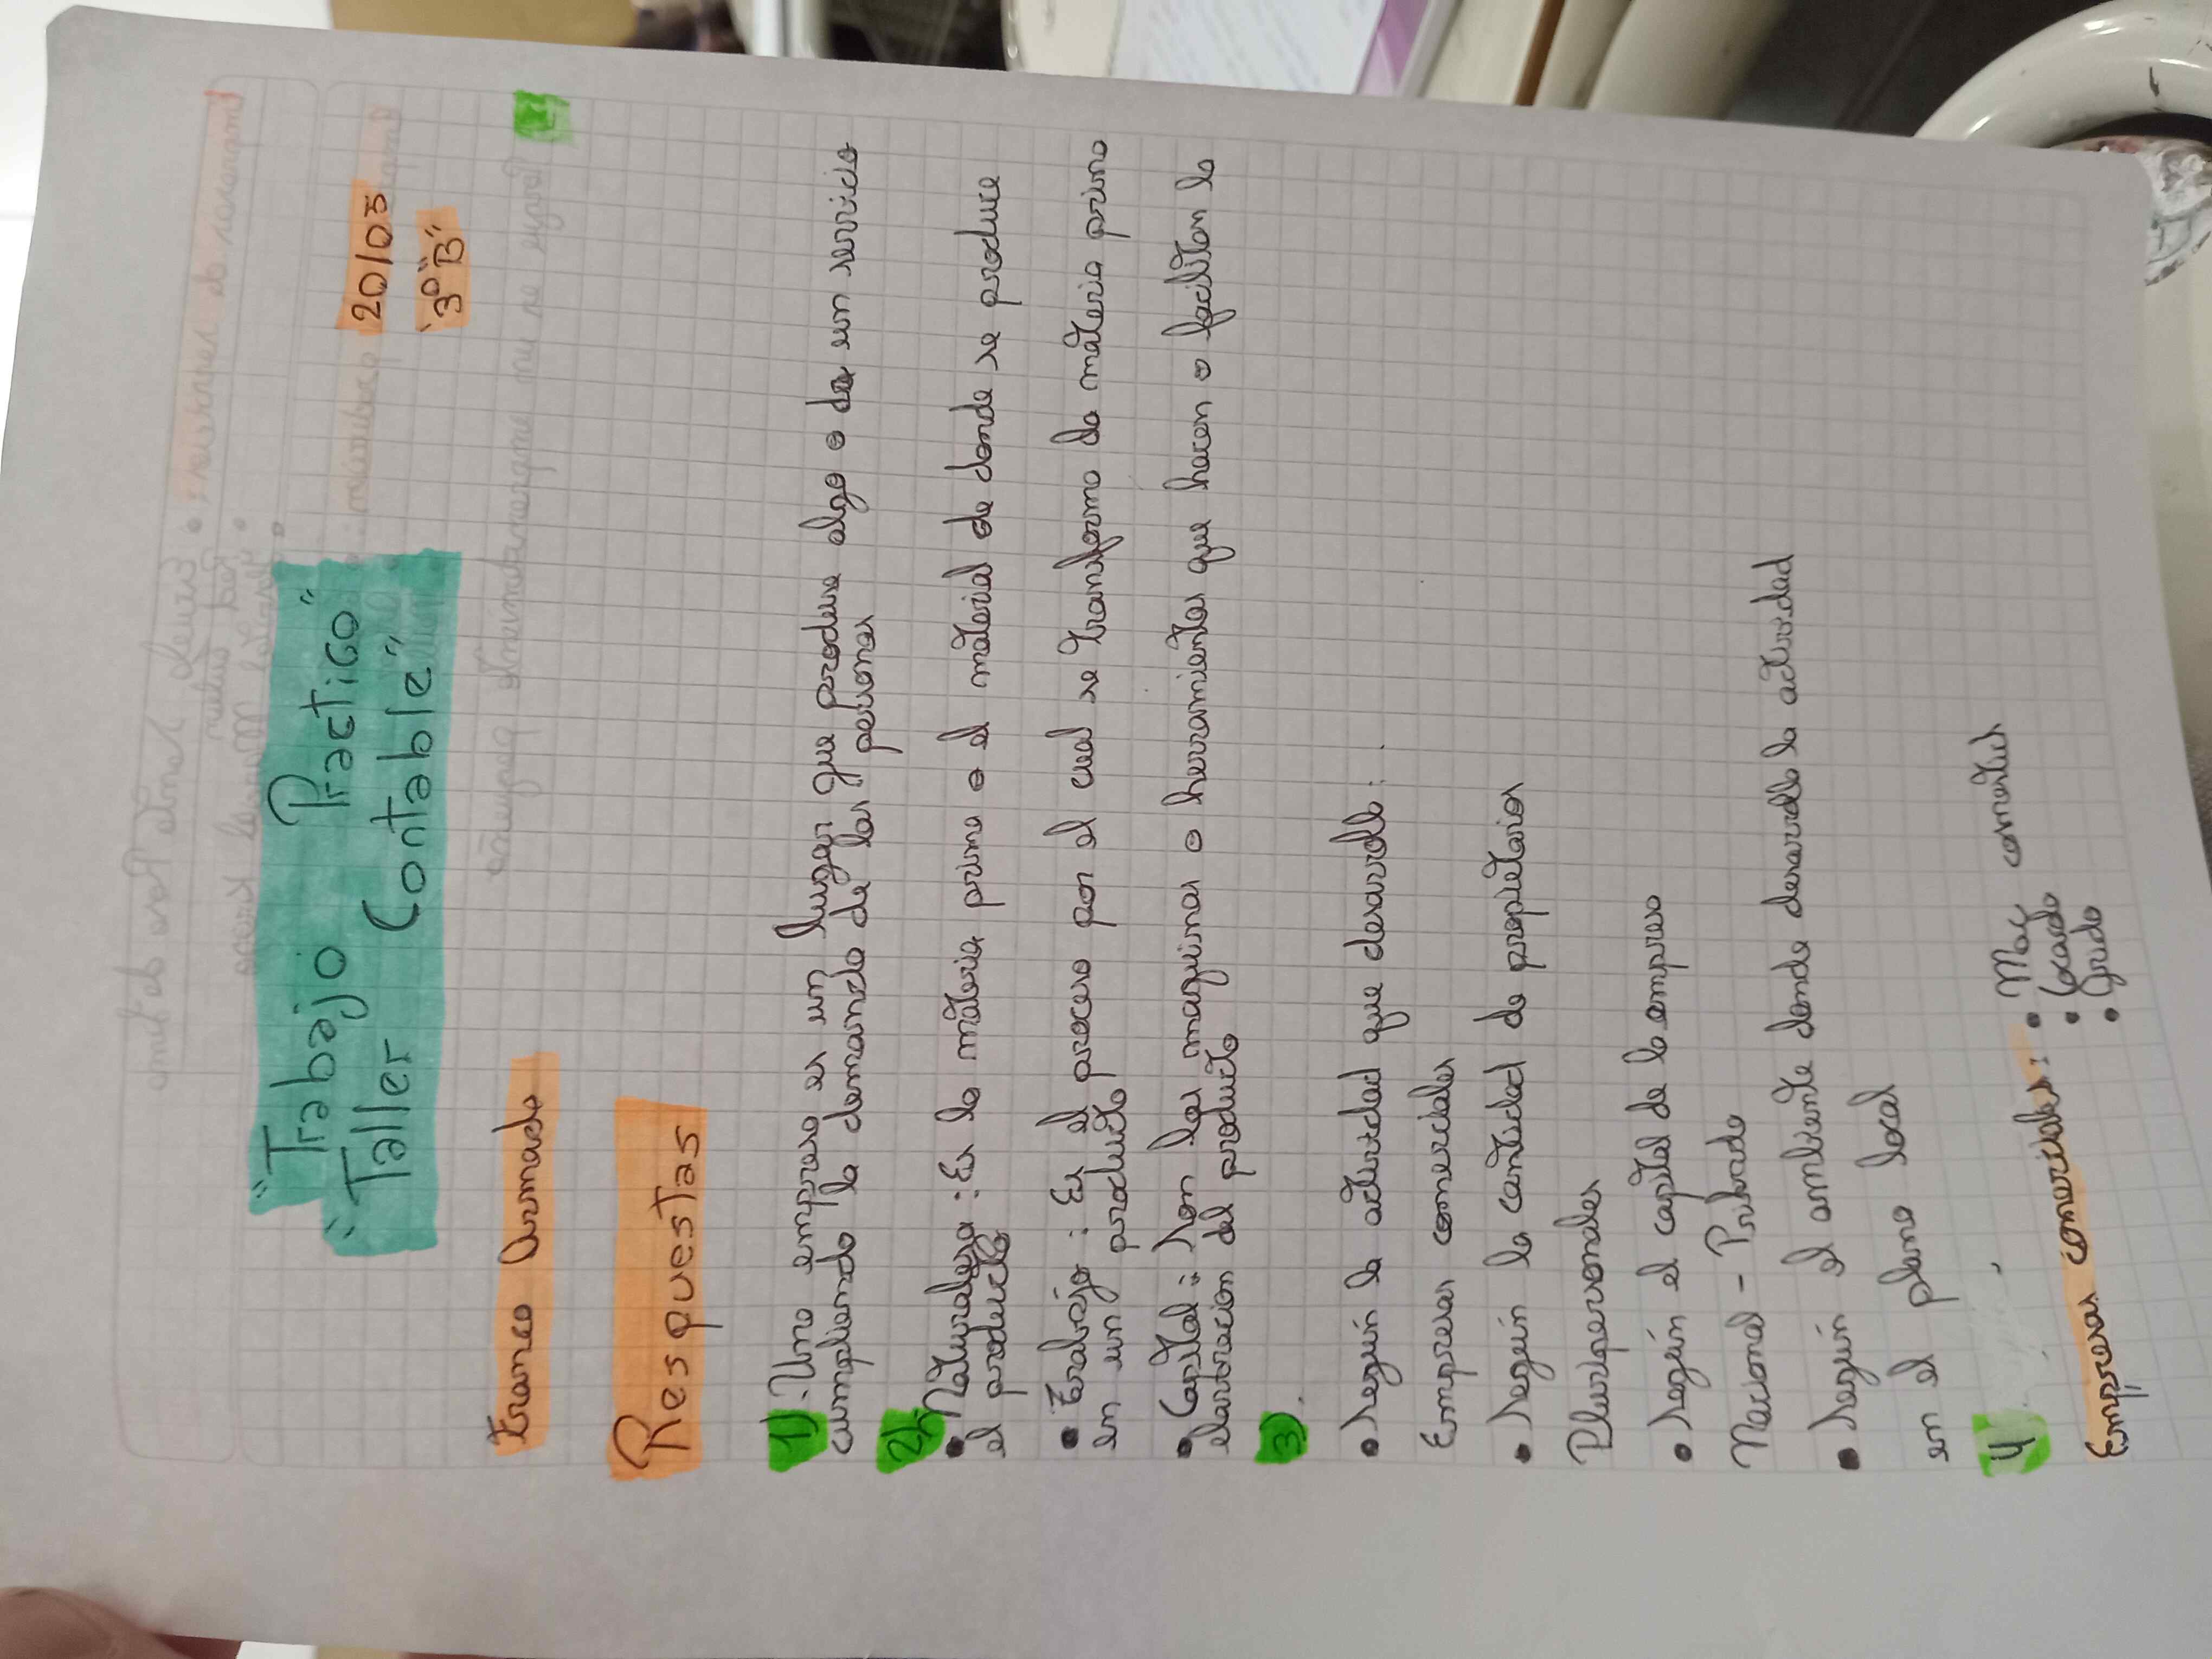 "Trabajo Practico"
"Taller Contable"
20/05
"3°B"
Franco Aumado
Resquestas
1) -Una empresa es un lugar que produce algo o da un servicio
cumpliendo la demanda de las personas
2)
• Naturaleza: Es la materia prima o el material de donde se produce
el producto
• Trabajo: Es el proceso por el cual se transforma la materia prima
en un producto
• Capital: Son las maquinas o herramientas que hacen o facilitan la
elavoracion del producto
3)
• Según la actividad que desarrolla:
Empresas comerciales
• Según la cantidad de propietarios
Pluripersonales
• Según el capital de la empresa
Nacional - Privado
• Según el ambiente donde desarrolla la actividad
en el plano local
4
Empresas comerciales: • Mac
•
•